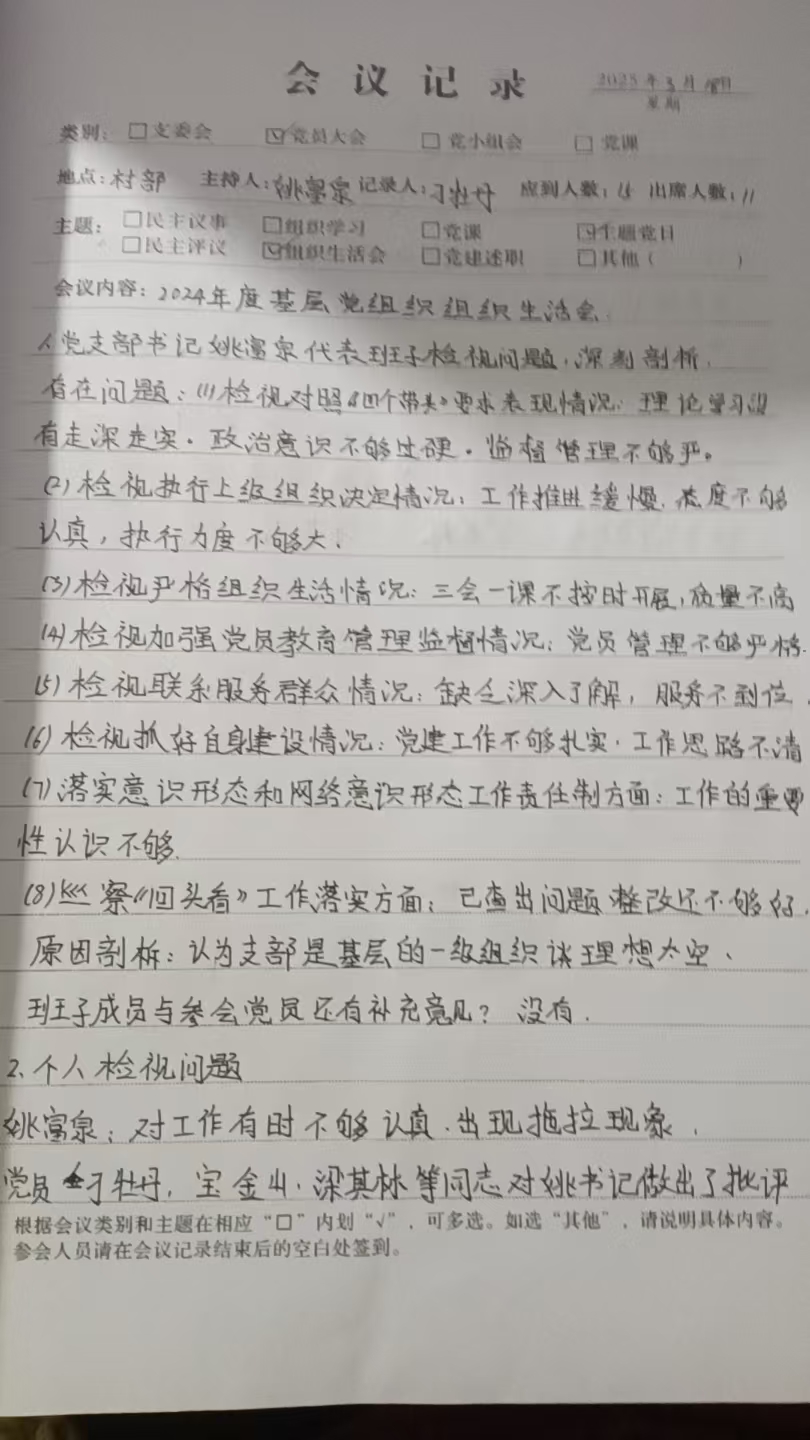 会议记录
2025年3月 日
星期
类别：□支委会 ☑党员大会 □党小组会 □党课
地点：村部 主持人：姚富泉 记录人：刁牡丹 应到人数： 出席人数：11
主题：□民主议事 □组织学习 □党课 ☑主题党日
□民主评议 ☑组织生活会 □党建述职 □其他（ ）
会议内容：2024年度基层党组织组织生活会.
党支部书记姚富泉代表班子检视问题，深刻剖析.
存在问题：(1)检视对照《四个带头》要求表现情况：理论学习没
有走深走实．政治意识不够过硬．监督管理不够严。
(2)检视执行上级组织决定情况：工作推进缓慢.态度不够
认真，执行力度不够大.
(3)检视严格组织生活情况：三会一课不按时开展,质量不高
(4)检视加强党员教育管理监督情况：党员管理不够严格.
(5)检视联系服务群众情况：缺乏深入了解，服务不到位.
(6)检视抓好自身建设情况：党建工作不够扎实.工作思路不清
(7)落实意识形态和网络意识形态工作责任制方面：工作的重要
性认识不够.
(8)巡察《回头看》工作落实方面：已查出问题整改还不够好.
原因剖析：认为支部是基层的一级组织谈理想太空、
班子成员与参会党员还有补充意见？没有.
2、个人检视问题
姚富泉：对工作有时不够认真.出现拖拉现象.
党员刁牡丹，宝金山.梁其林等同志对姚书记做出了批评
根据会议类别和主题在相应“□”内划“√”，可多选。如选“其他”，请说明具体内容。
参会人员请在会议记录结束后的空白处签到。